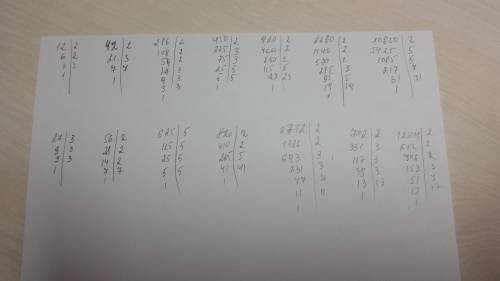 12 | 2
6 | 2
3 | 3
1
42 | 2
21 | 3
7 | 7
1
216 | 2
108 | 2
54 | 2
27 | 3
9 | 3
3 | 3
1
450 | 2
225 | 3
75 | 3
25 | 5
5 | 5
1
920 | 2
460 | 2
230 | 2
115 | 5
23 | 23
1
2280 | 2
1140 | 2
570 | 2
285 | 3
95 | 5
19 | 19
1
10850 | 2
5425 | 5
1085 | 5
217 | 7
31 | 31
1
27 | 3
9 | 3
3 | 3
1
56 | 2
28 | 2
14 | 2
7 | 7
1
625 | 5
125 | 5
25 | 5
5 | 5
1
820 | 2
410 | 2
205 | 5
41 | 41
1
2772 | 2
1386 | 2
693 | 3
231 | 3
77 | 7
11 | 11
1
702 | 2
351 | 3
117 | 3
39 | 3
13 | 13
1
1224 | 2
612 | 2
306 | 2
153 | 3
51 | 3
17 | 17
1